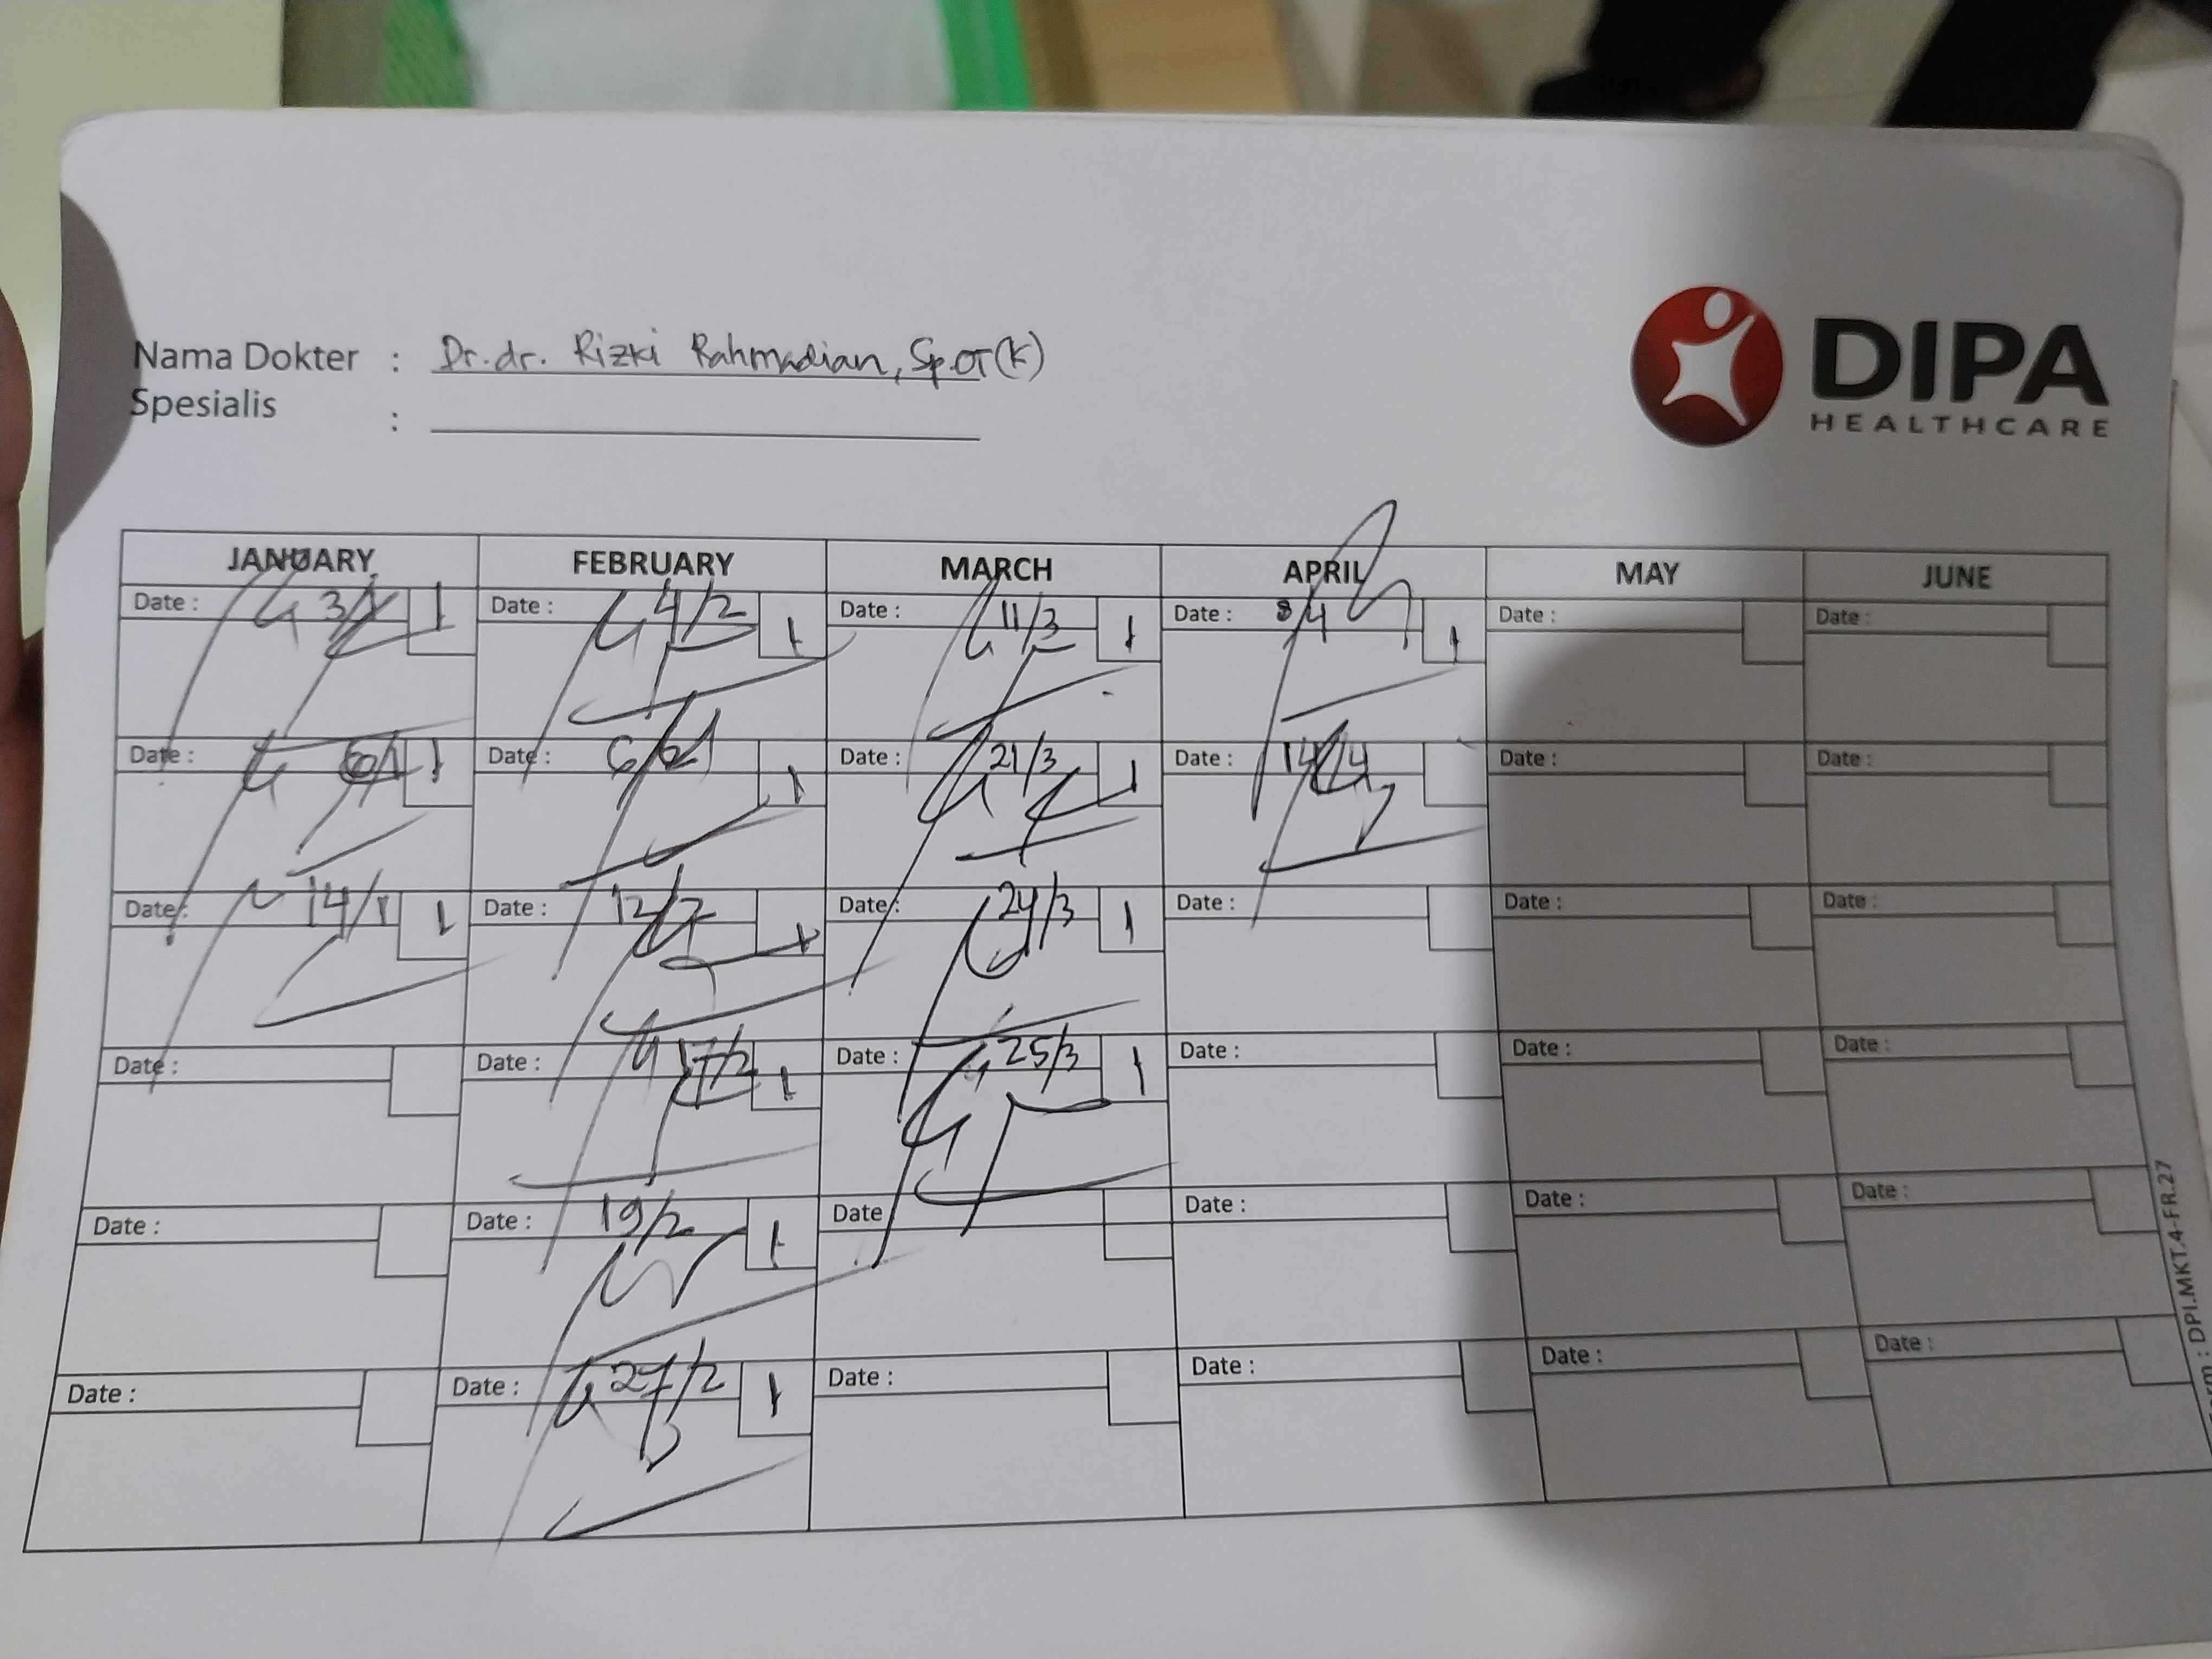 Nama Dokter : Dr. dr. Rizki Rahmadian, Sp.OT(K)
Spesialis :
DIPA
HEALTHCARE
JANUARY FEBRUARY MARCH APRIL MAY JUNE
Date : 3/1 1 Date : 4/2 1 Date : 11/3 1 Date : 8/4 1 Date : Date :
Date : 6/1 1 Date : 6/2 1 Date : 21/3 1 Date : 14/4 Date : Date :
Date : 14/1 1 Date : 12/2 1 Date : 24/3 1 Date : Date : Date :
Date : Date : 17/2 1 Date : 25/3 1 Date : Date : Date :
Date : Date : 19/2 1 Date Date : Date : Date :
Date : Date : 27/2 1 Date : Date : Date : Date :
: DPI.MKT.4-FR.27